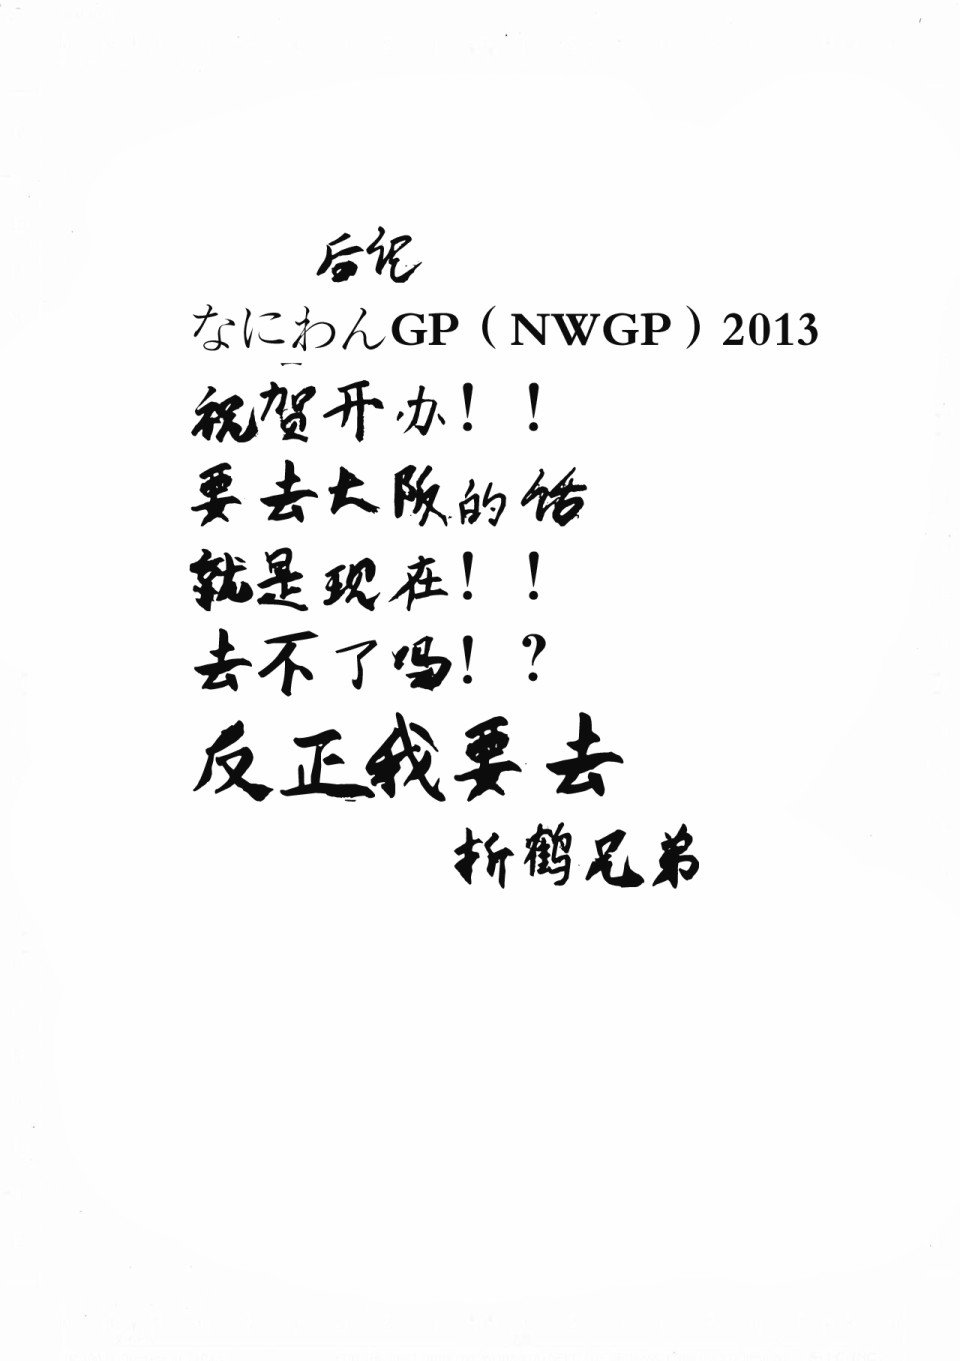 后记
なにわんGP（NWGP）2013
祝贺开办！！
要去大阪的话
就是现在！！
去不了吗！？
反正我要去
折鹤兄弟